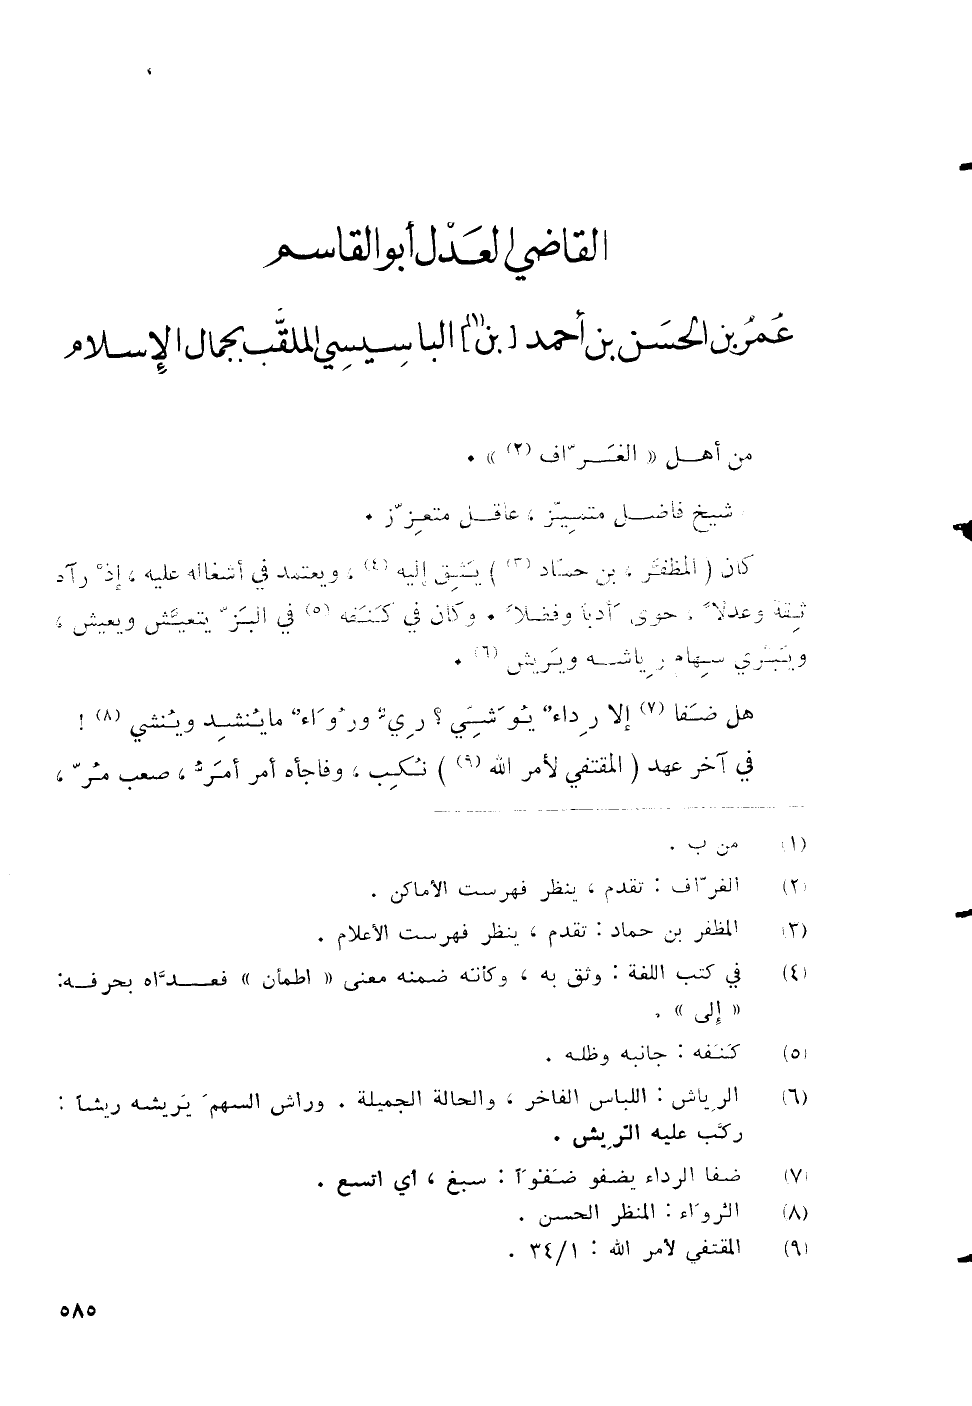 القاضي العَدْل أبو القاسم
عُمَرُ بن الحسَن بن أحمد [بن (١)] الباسِيسِي الملقَّب بجمال الإِسلام
من أهـــل « الغَـــرّاف (٢) » .
شيخ فاضـــل متميِّز ، عاقـــل متعزِّز .
كان ( المظفَّر ، بن حمّاد (٣) ) يَثِق إليه (٤) ، ويعتمد في أشغاله عليه ، إذْ رآه
ثِقَة وعدلاً ، حوى أدباً وفضلاً . وكان في كَنَفه (٥) في البَزّ يتعيَّش ويعيش ،
ويَبْري سهام رِياشـــه ويَريش (٦) .
هل ضَفا (٧) إلا رِداءٌ يُوَشِّي ؟ رِيٌّ ورُوَاءٌ ما يُنشِد ويُنشي (٨) !
في آخر عهد ( المقتفي لأمر الله (٩) ) نُكِب ، وفاجأه أمر أمَرُّ ، صعب مُرّ ،
(١) من ب .
(٢) الغرّاف : تقدم ، ينظر فهرست الأماكن .
(٣) المظفر بن حماد : تقدم ، ينظر فهرست الأعلام .
(٤) في كتب اللغة : وثق به ، وكأنه ضمنه معنى « اطمأن » فعـــدَّاه بحرفـه :
« إلى » .
(٥) كَنَفه : جانبه وظله .
(٦) الرِياش : اللباس الفاخر ، والحالة الجميلة . وراش السهمَ يَريشه ريشاً :
ركَّب عليه الرِيش .
(٧) ضفا الرداء يضفو ضَفْوَاً : سبغ ، أي اتسع .
(٨) الرُّوَاء : المنظر الحسن .
(٩) المقتفي لأمر الله : ٣٤/١ .
٥٨٥